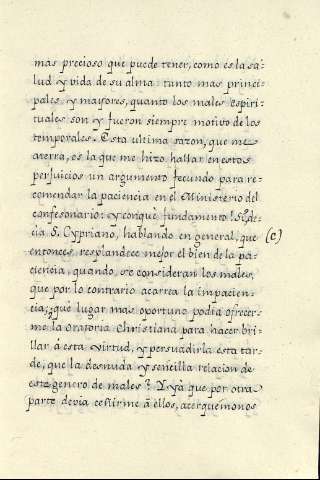 mas precioso que puede tener, como es la sa=
lud y vida de su alma: tanto mas princi=
pales, y mayores, quanto los males espiri=
tuales son y fueron siempre motivo de los
temporales. Esta ultima razon, que me
aterra, es la que me hizo hallar en estos
perjuicios un argumento fecundo para re=
comendar la paciencia en el Ministerio del
confesonario: y con que fundamento! S. De=
cia S. Cypriano, hablando en general, que (c)
entonces resplandece mejor el bien de la pa=
ciencia, quando se consideran los males,
que por lo contrario acarrea la impacien=
cia; que lugar mas oportuno podia ofrecer=
me la Oratoria Christiana para hacer bri=
llar à esta virtud, y persuadirla esta tar=
de, que la desnuda y sencilla relacion de
este genero de males? Y yà que por otra
parte debia ceñirme à ellos, acerquemonos